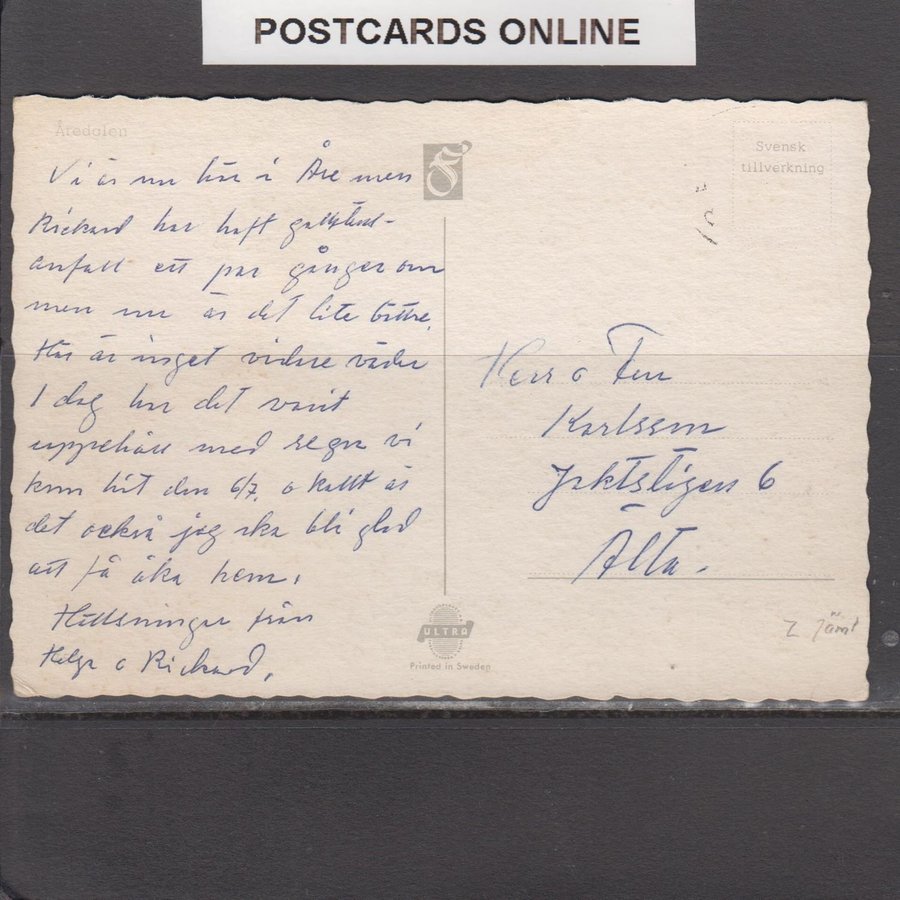 POSTCARDS ONLINE
Åredalen
Svensk
tillverkning
Vi är nu här i Åre men
Rickard har haft gallstens-
anfall ett par gånger om
men nu är det lite bättre.
Här är inget vidare väder
I dag har det varit
uppehåll med regn vi
kom hit den 6/7. o kallt är
det också jag ska bli glad
att få åka hem.
Hällsningar från
o Rickard.
Herr o Fru
Karlsson
Jaktstigen 6
Älta.
ULTRA
Printed in Sweden